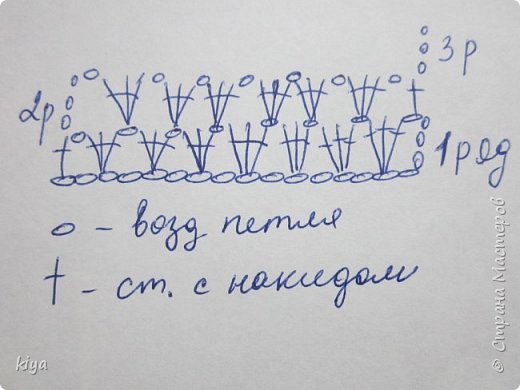 3 р
2р
1 ряд
о - возд петля
† - ст. с накидом
kiya
© Страна Мастеров